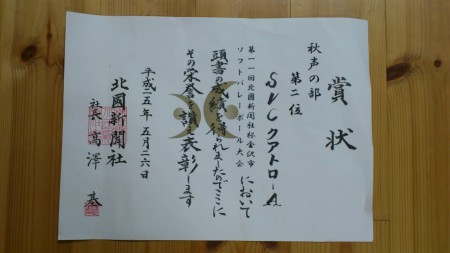 賞状
秋声の部
第二位
SVCクアトローA
第一一回北國新聞社杯金沢市
ソフトバレーボール大会
において
頭書の成績を得られましたのでここに
その栄誉を讃え表彰します
平成二五年 五月二六日
北國新聞社
社長 高澤 基